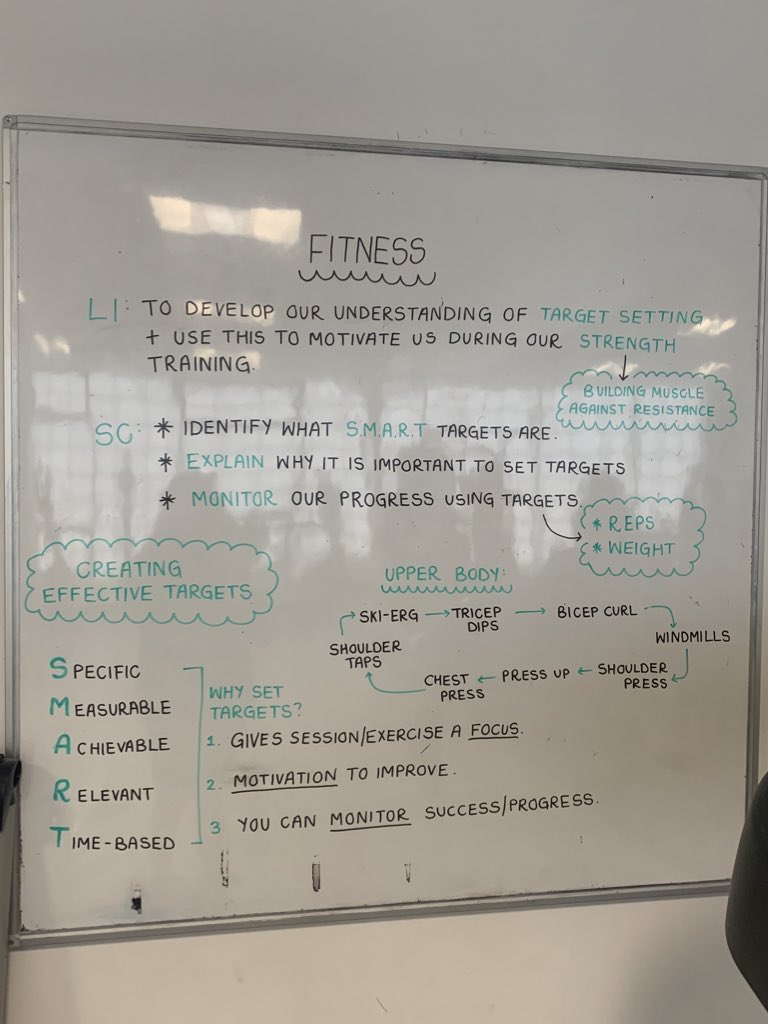 FITNESS
LI: TO DEVELOP OUR UNDERSTANDING OF TARGET SETTING
+ USE THIS TO MOTIVATE US DURING OUR STRENGTH
TRAINING.
BUILDING MUSCLE
AGAINST RESISTANCE
SC: * IDENTIFY WHAT S.M.A.R.T TARGETS ARE.
* EXPLAIN WHY IT IS IMPORTANT TO SET TARGETS
* MONITOR OUR PROGRESS USING TARGETS.
* REPS
* WEIGHT
CREATING
EFFECTIVE TARGETS
SPECIFIC
MEASURABLE
ACHIEVABLE
RELEVANT
TIME-BASED
UPPER BODY:
SKI-ERG → TRICEP
DIPS → BICEP CURL →
WINDMILLS →
SHOULDER
PRESS ← PRESS UP ← CHEST
PRESS
SHOULDER
TAPS
WHY SET
TARGETS?
1. GIVES SESSION/EXERCISE A FOCUS.
2. MOTIVATION TO IMPROVE.
3 YOU CAN MONITOR SUCCESS/PROGRESS.